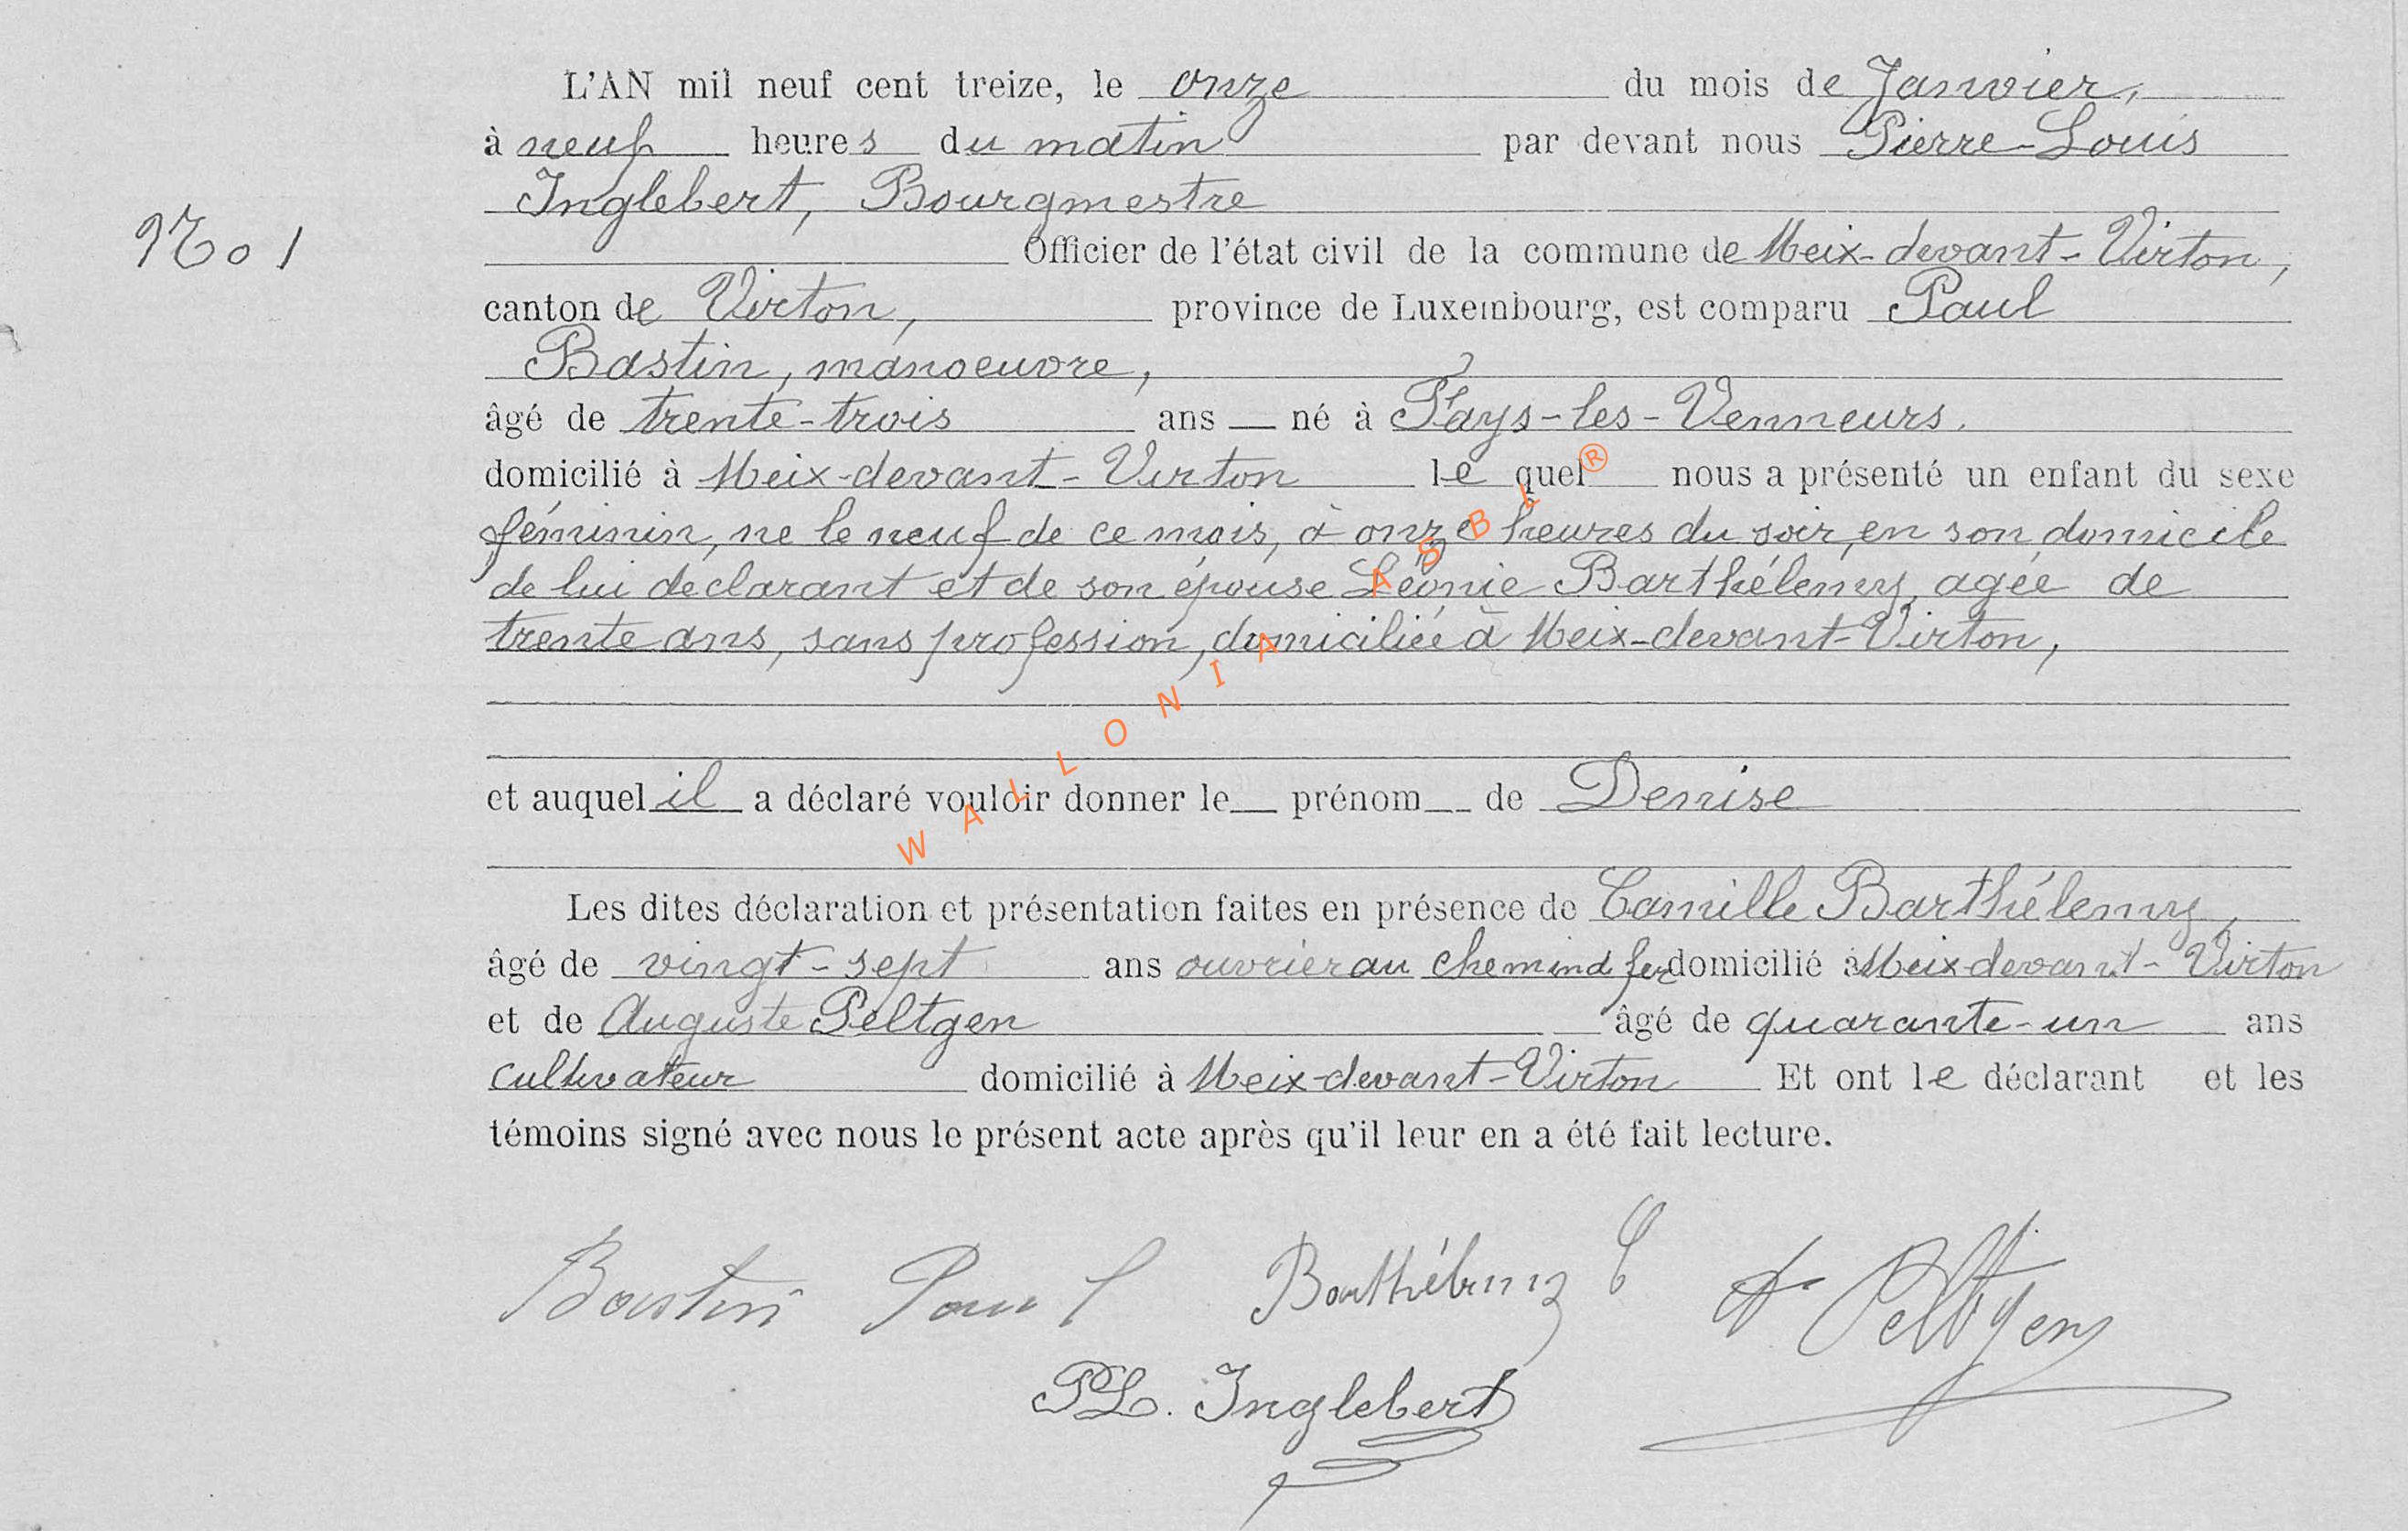 L'AN mil neuf cent treize, le onze du mois de Janvier,
à neuf heures du matin par devant nous Pierre-Louis
Inglebert, Bourgmestre
No 1
Officier de l'état civil de la commune de Meix-devant-Virton,
canton de Virton, province de Luxembourg, est comparu Paul
Bastin, manoeuvre,
âgé de trente-trois ans né à Fays-les-Venneurs.
domicilié à Meix-devant-Virton le quel nous a présenté un enfant du sexe
féminin, ne le neuf de ce mois, à onze heures du soir, en son domicile
de lui declarant et de son épouse Léonie Barthélemy, agée de
trente ans, sans profession, domiciliée à Meix-devant-Virton,
et auquel il a déclaré vouloir donner le prénom de Denise
Les dites déclaration et présentation faites en présence de Camille Barthélemy,
âgé de vingt-sept ans ouvrier au chemin d fer domicilié à Meix devant-Virton
et de Auguste Peltgen âgé de quarante-un ans
cultivateur domicilié à Meix-devant-Virton Et ont le déclarant et les
témoins signé avec nous le présent acte après qu'il leur en a été fait lecture.
Bastin Paul Barthélemy C A Peltgen
PL. Inglebert
WALLONIA ASBL®